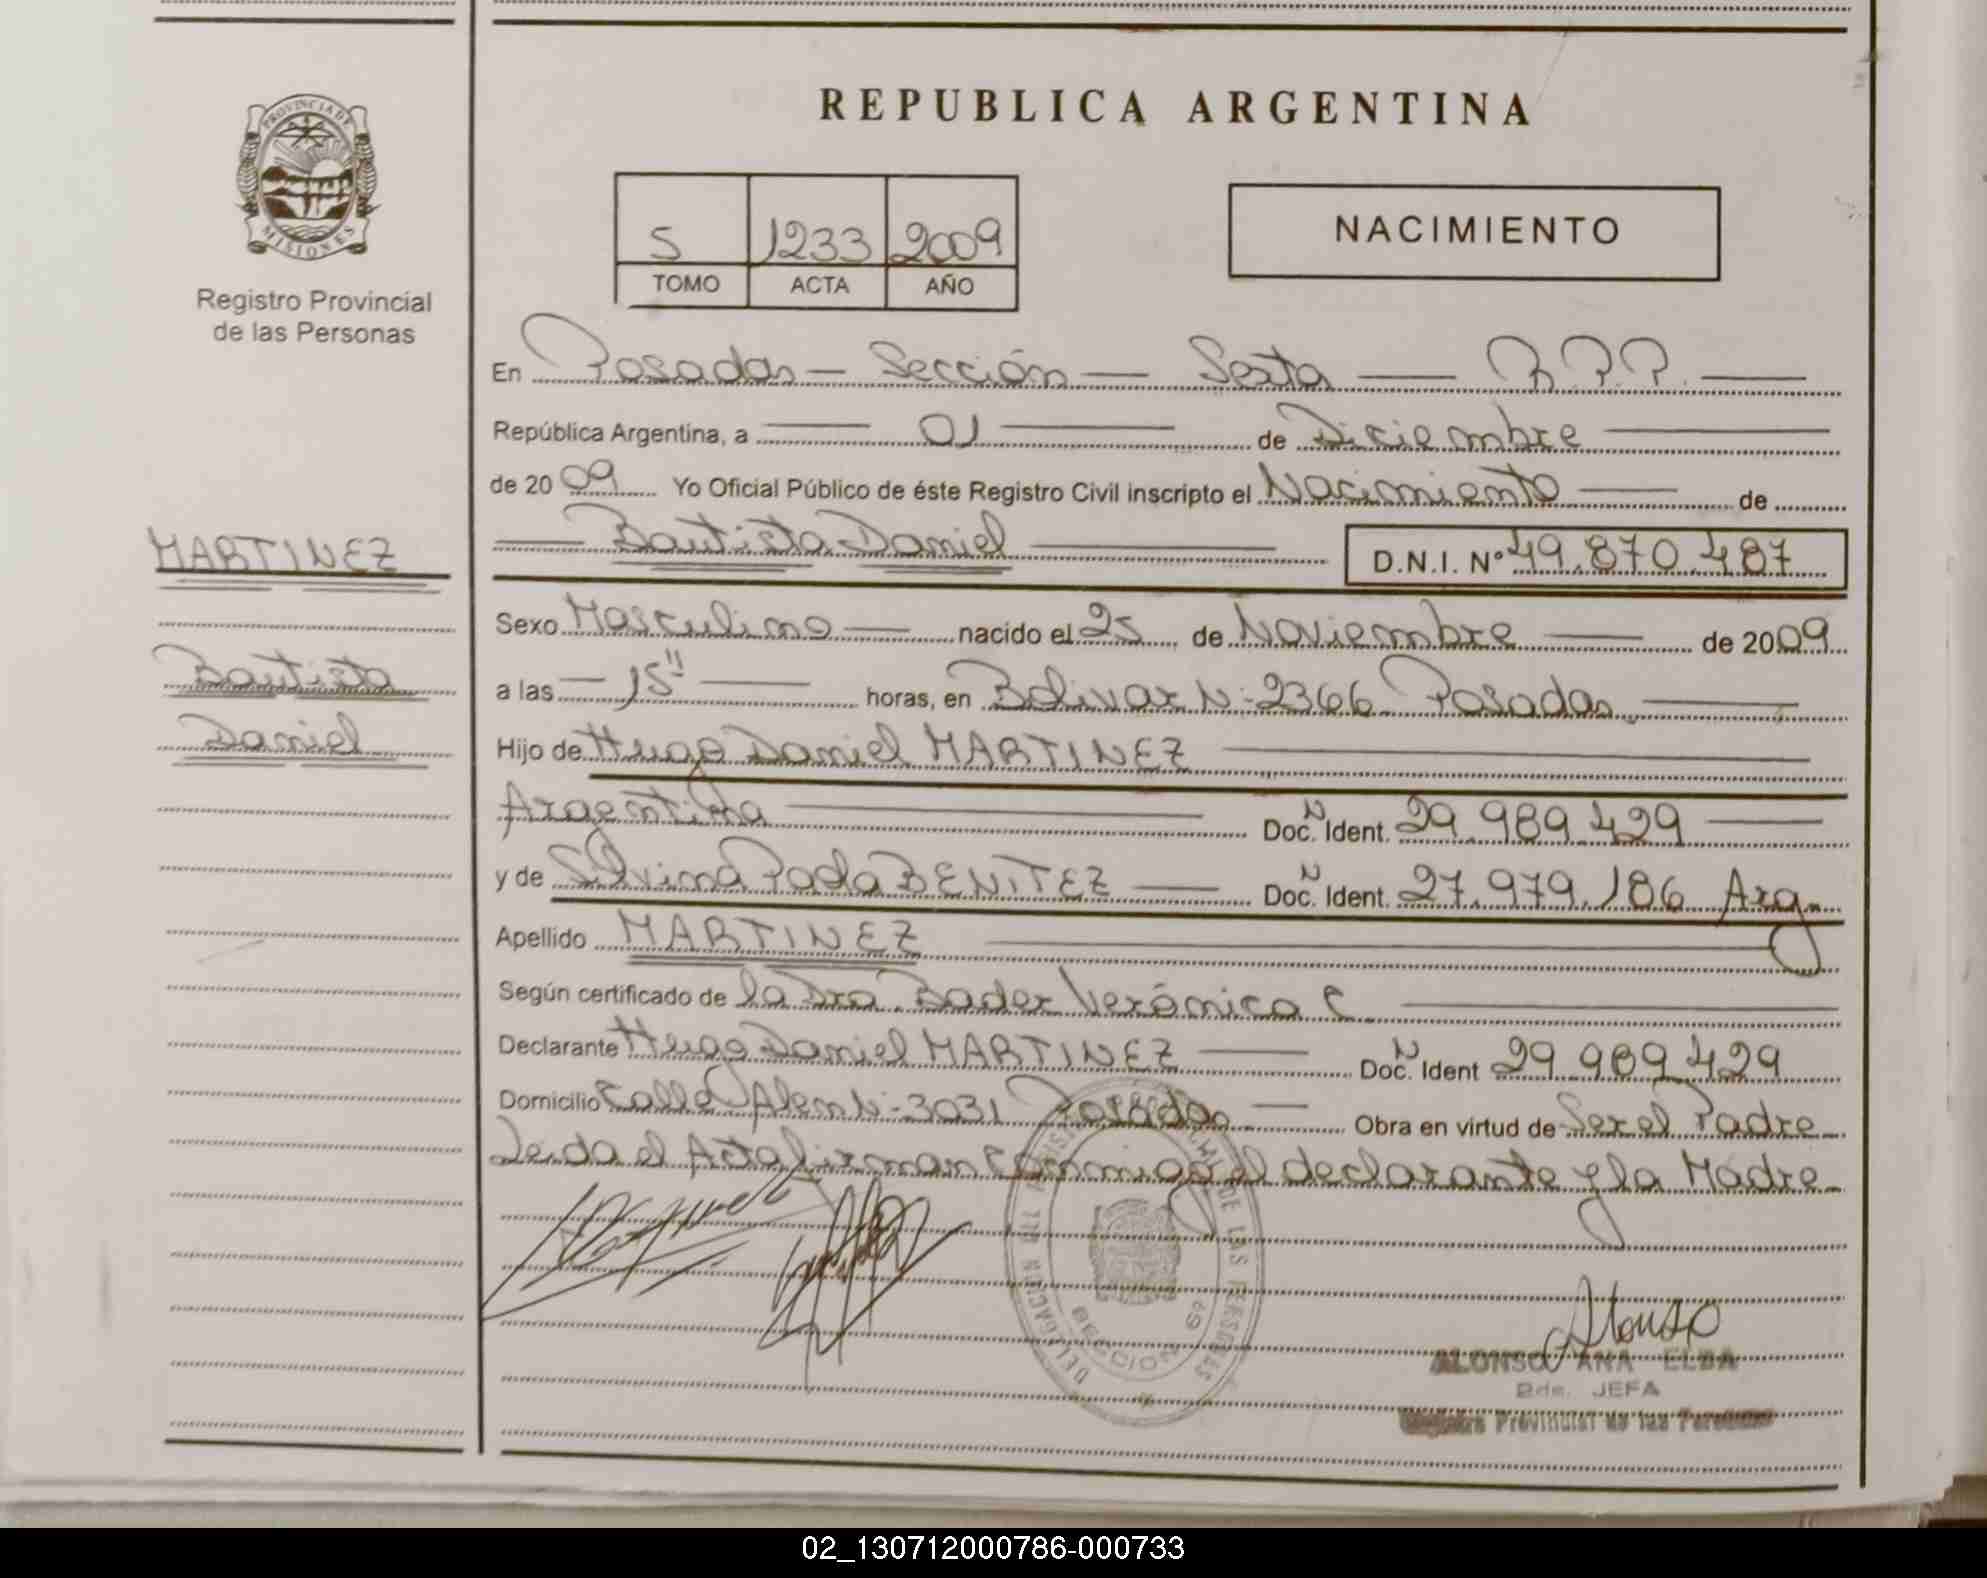 PROVINCIA DE
MISIONES
Registro Provincial
de las Personas
MARTINEZ
Bautista
Daniel
REPUBLICA ARGENTINA
5 1233 2009
TOMO ACTA AÑO
NACIMIENTO
En Posadas — Sección — Sexta — R.P.P. —
República Argentina, a — 01 — de Diciembre —
de 2009 Yo Oficial Público de éste Registro Civil inscripto el Nacimiento — de
— Bautista Daniel — D.N.I. Nº 49.870.487
Sexo Masculino — nacido el 25 de Noviembre — de 2009
a las — 15" — horas, en Bolivar N- 2366 Posadas —
Hijo de Hugo Daniel MARTINEZ —
Argentina — Doc. N Ident. 29.989.429 —
y de Silvina Paola BENITEZ — Doc. N Ident. 27.979.186 Arg.
Apellido MARTINEZ —
Según certificado de la Dra. Bader Verónica C. —
Declarante Hugo Daniel MARTINEZ — Doc. N Ident 29.989.429
Domicilio Calle Alem N- 3031 Posadas — Obra en virtud de Ser el Padre
Leida el Acta firman conmigo el declarante y la Madre
DELEGACION SECCION 6ª DE LAS PERSONAS
Alonso
ALONSO ANA ELBA
2da. JEFA
Registro Provincial de las Personas
02_130712000786-000733